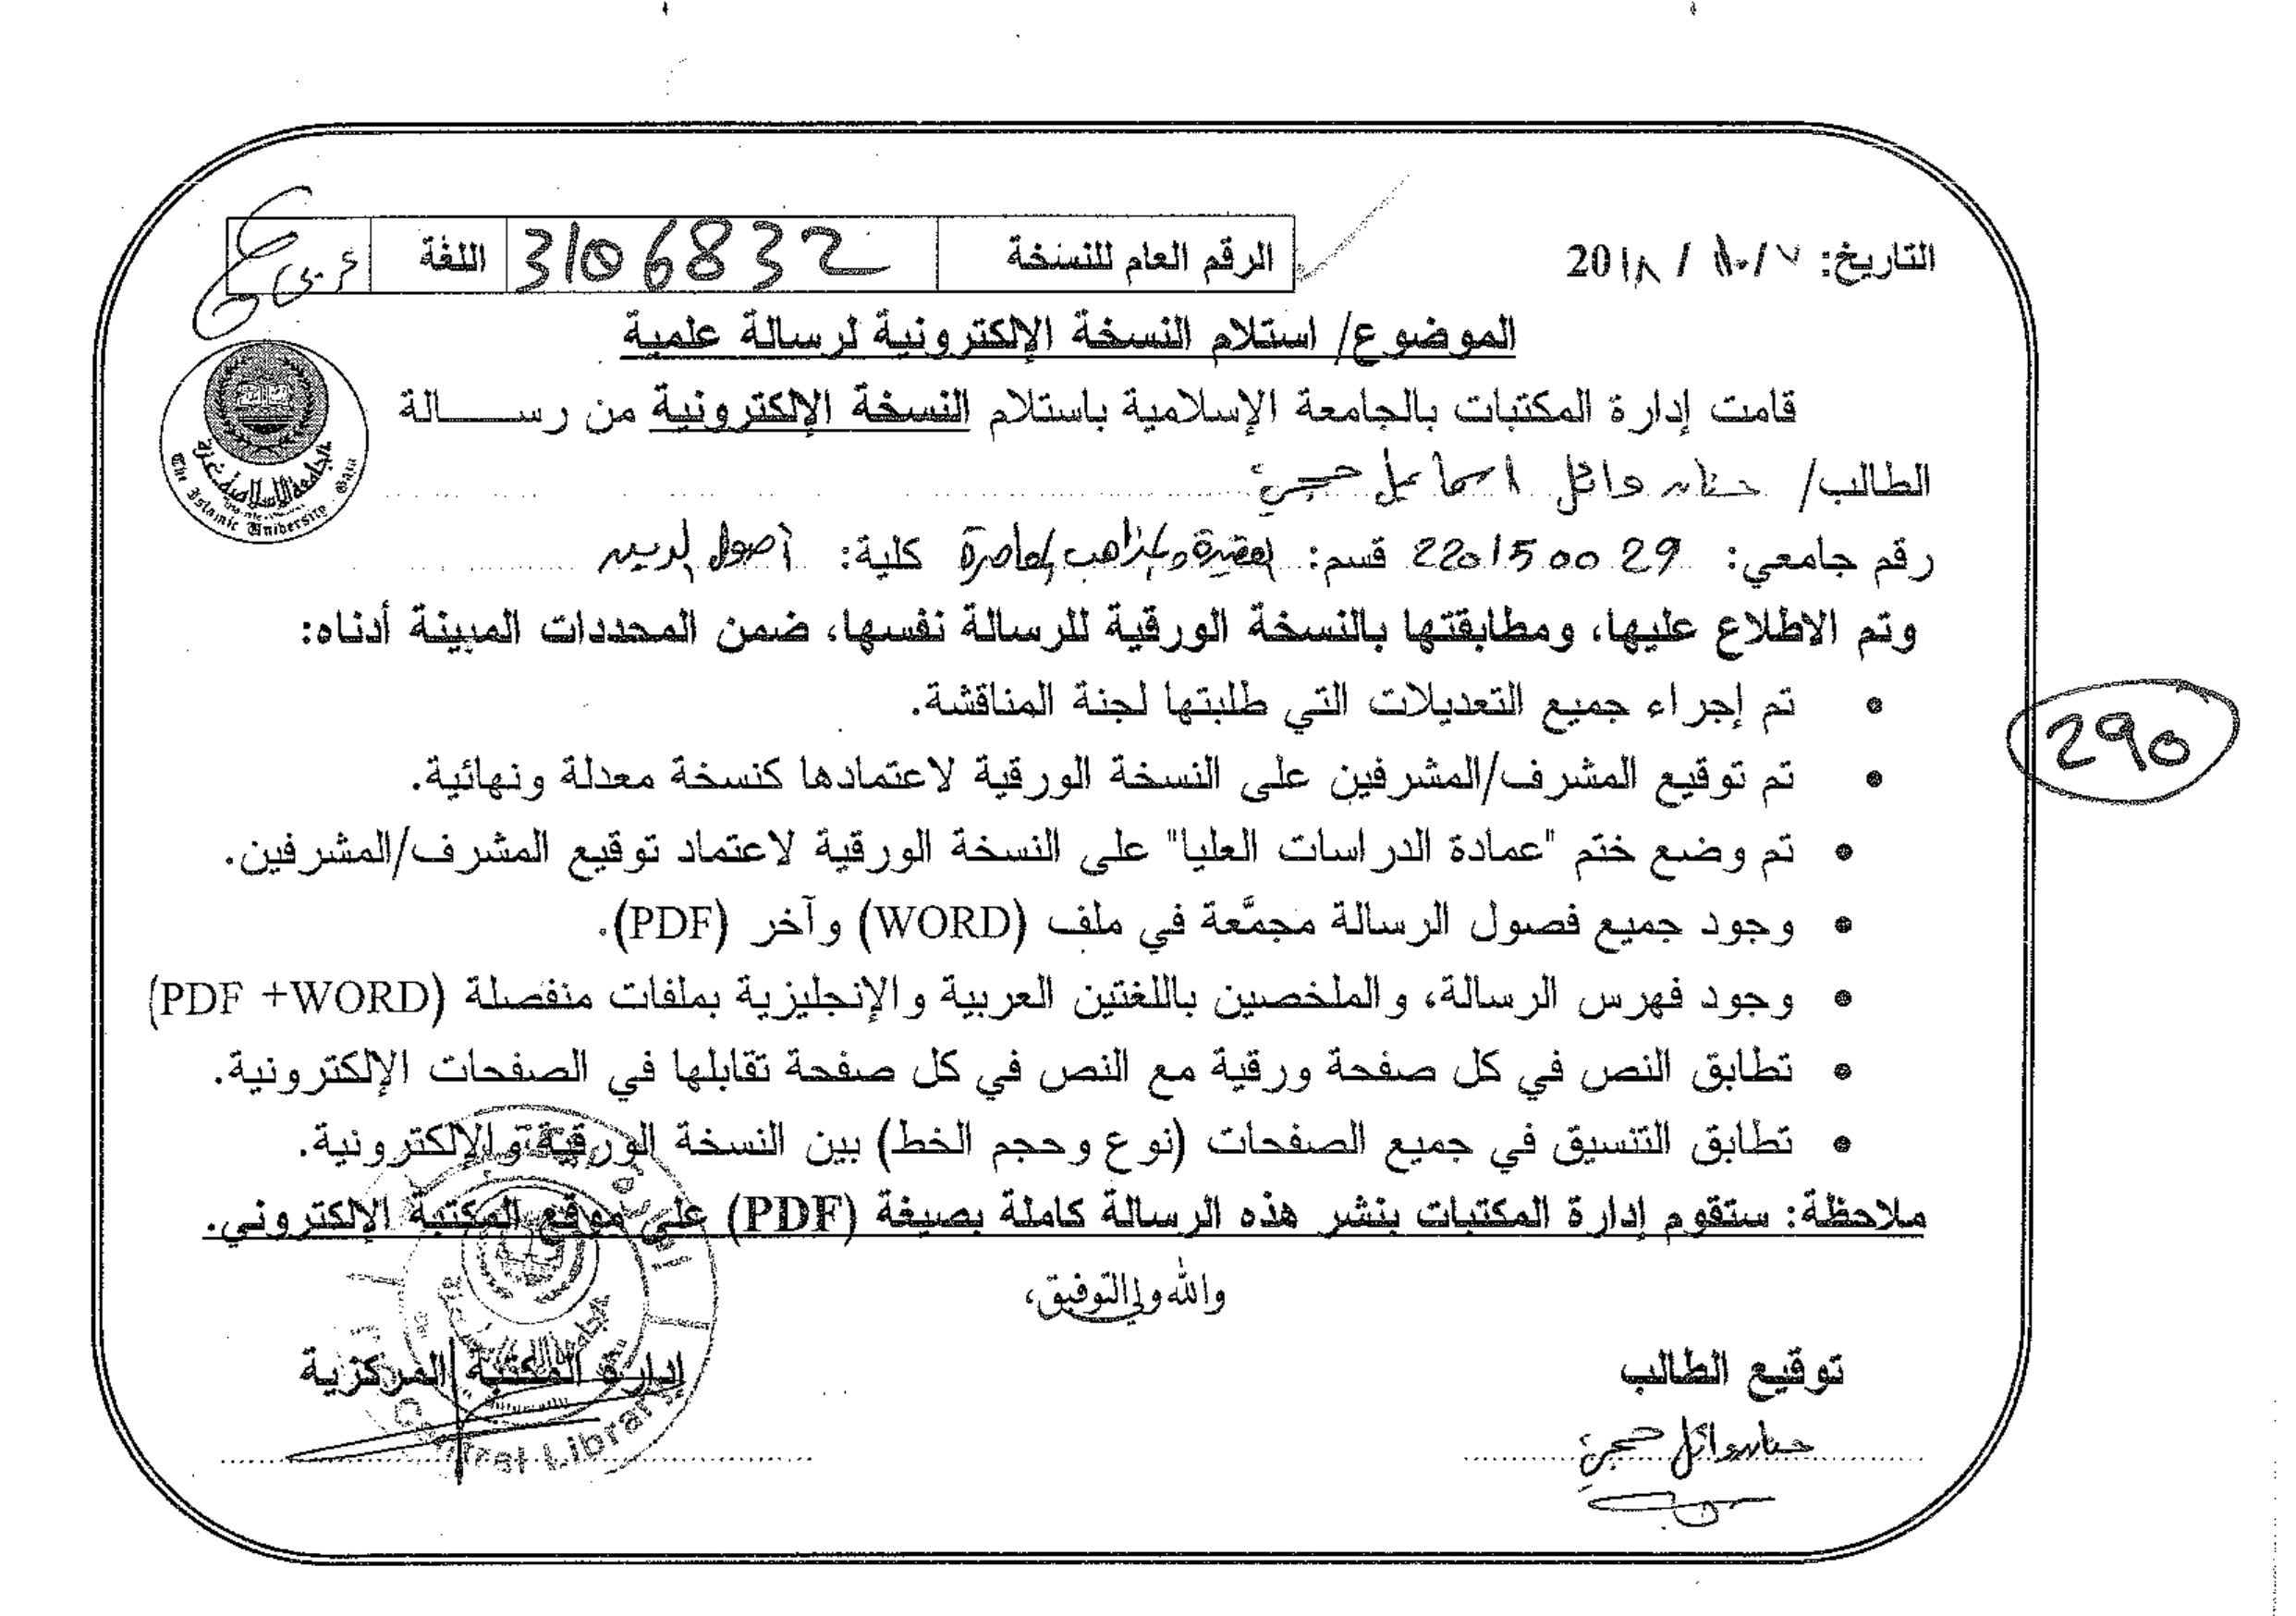 التاريخ: ٧ / ١٠ / 20١٨
الرقم العام للنسخة 3106832 اللغة عربي
الموضوع/ استلام النسخة الإلكترونية لرسالة علمية
قامت إدارة المكتبات بالجامعة الإسلامية باستلام النسخة الإلكترونية من رســـــالة
الطالب/ حنان وائل اسماعيل حجي
رقم جامعي: 220150029 قسم: العقيدة والمذاهب المعاصرة كلية: أصول الدين
وتم الاطلاع عليها، ومطابقتها بالنسخة الورقية للرسالة نفسها، ضمن المحددات المبينة أدناه:
• تم إجراء جميع التعديلات التي طلبتها لجنة المناقشة.
290
• تم توقيع المشرف/المشرفين على النسخة الورقية لاعتمادها كنسخة معدلة ونهائية.
• تم وضع ختم "عمادة الدراسات العليا" على النسخة الورقية لاعتماد توقيع المشرف/المشرفين.
• وجود جميع فصول الرسالة مجمَّعة في ملف (WORD) وآخر (PDF).
• وجود فهرس الرسالة، والملخصين باللغتين العربية والإنجليزية بملفات منفصلة (PDF +WORD)
• تطابق النص في كل صفحة ورقية مع النص في كل صفحة تقابلها في الصفحات الإلكترونية.
• تطابق التنسيق في جميع الصفحات (نوع وحجم الخط) بين النسخة الورقية والإلكترونية.
ملاحظة: ستقوم إدارة المكتبات بنشر هذه الرسالة كاملة بصيغة (PDF) على موقع المكتبة الإلكتروني.
والله ولي التوفيق،
توقيع الطالب
إدارة المكتبة المركزية
حنان وائل حجي
الجامعة الإسلامية غزة
The Islamic University Gaza
Central Library